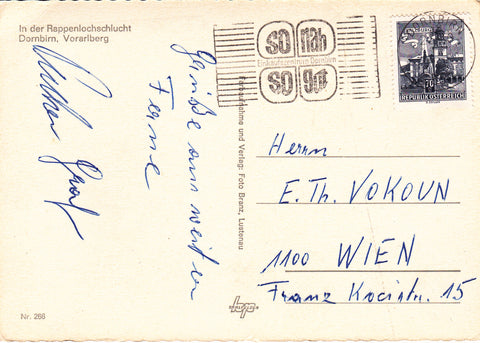 In der Rappenlochschlucht
Dornbirn, Vorarlberg
Grüße aus weiter
Ferne
so nah
Einkaufszentrum Dornbirn
so gut
DORNBIRN
70
REPUBLIK ÖSTERREICH
Farbaufnahme und Verlag: Foto Branz, Lustenau
Herrn
E. Th. VOKOUN
1100 WIEN
Franz Kocistr. 15
Nr. 266